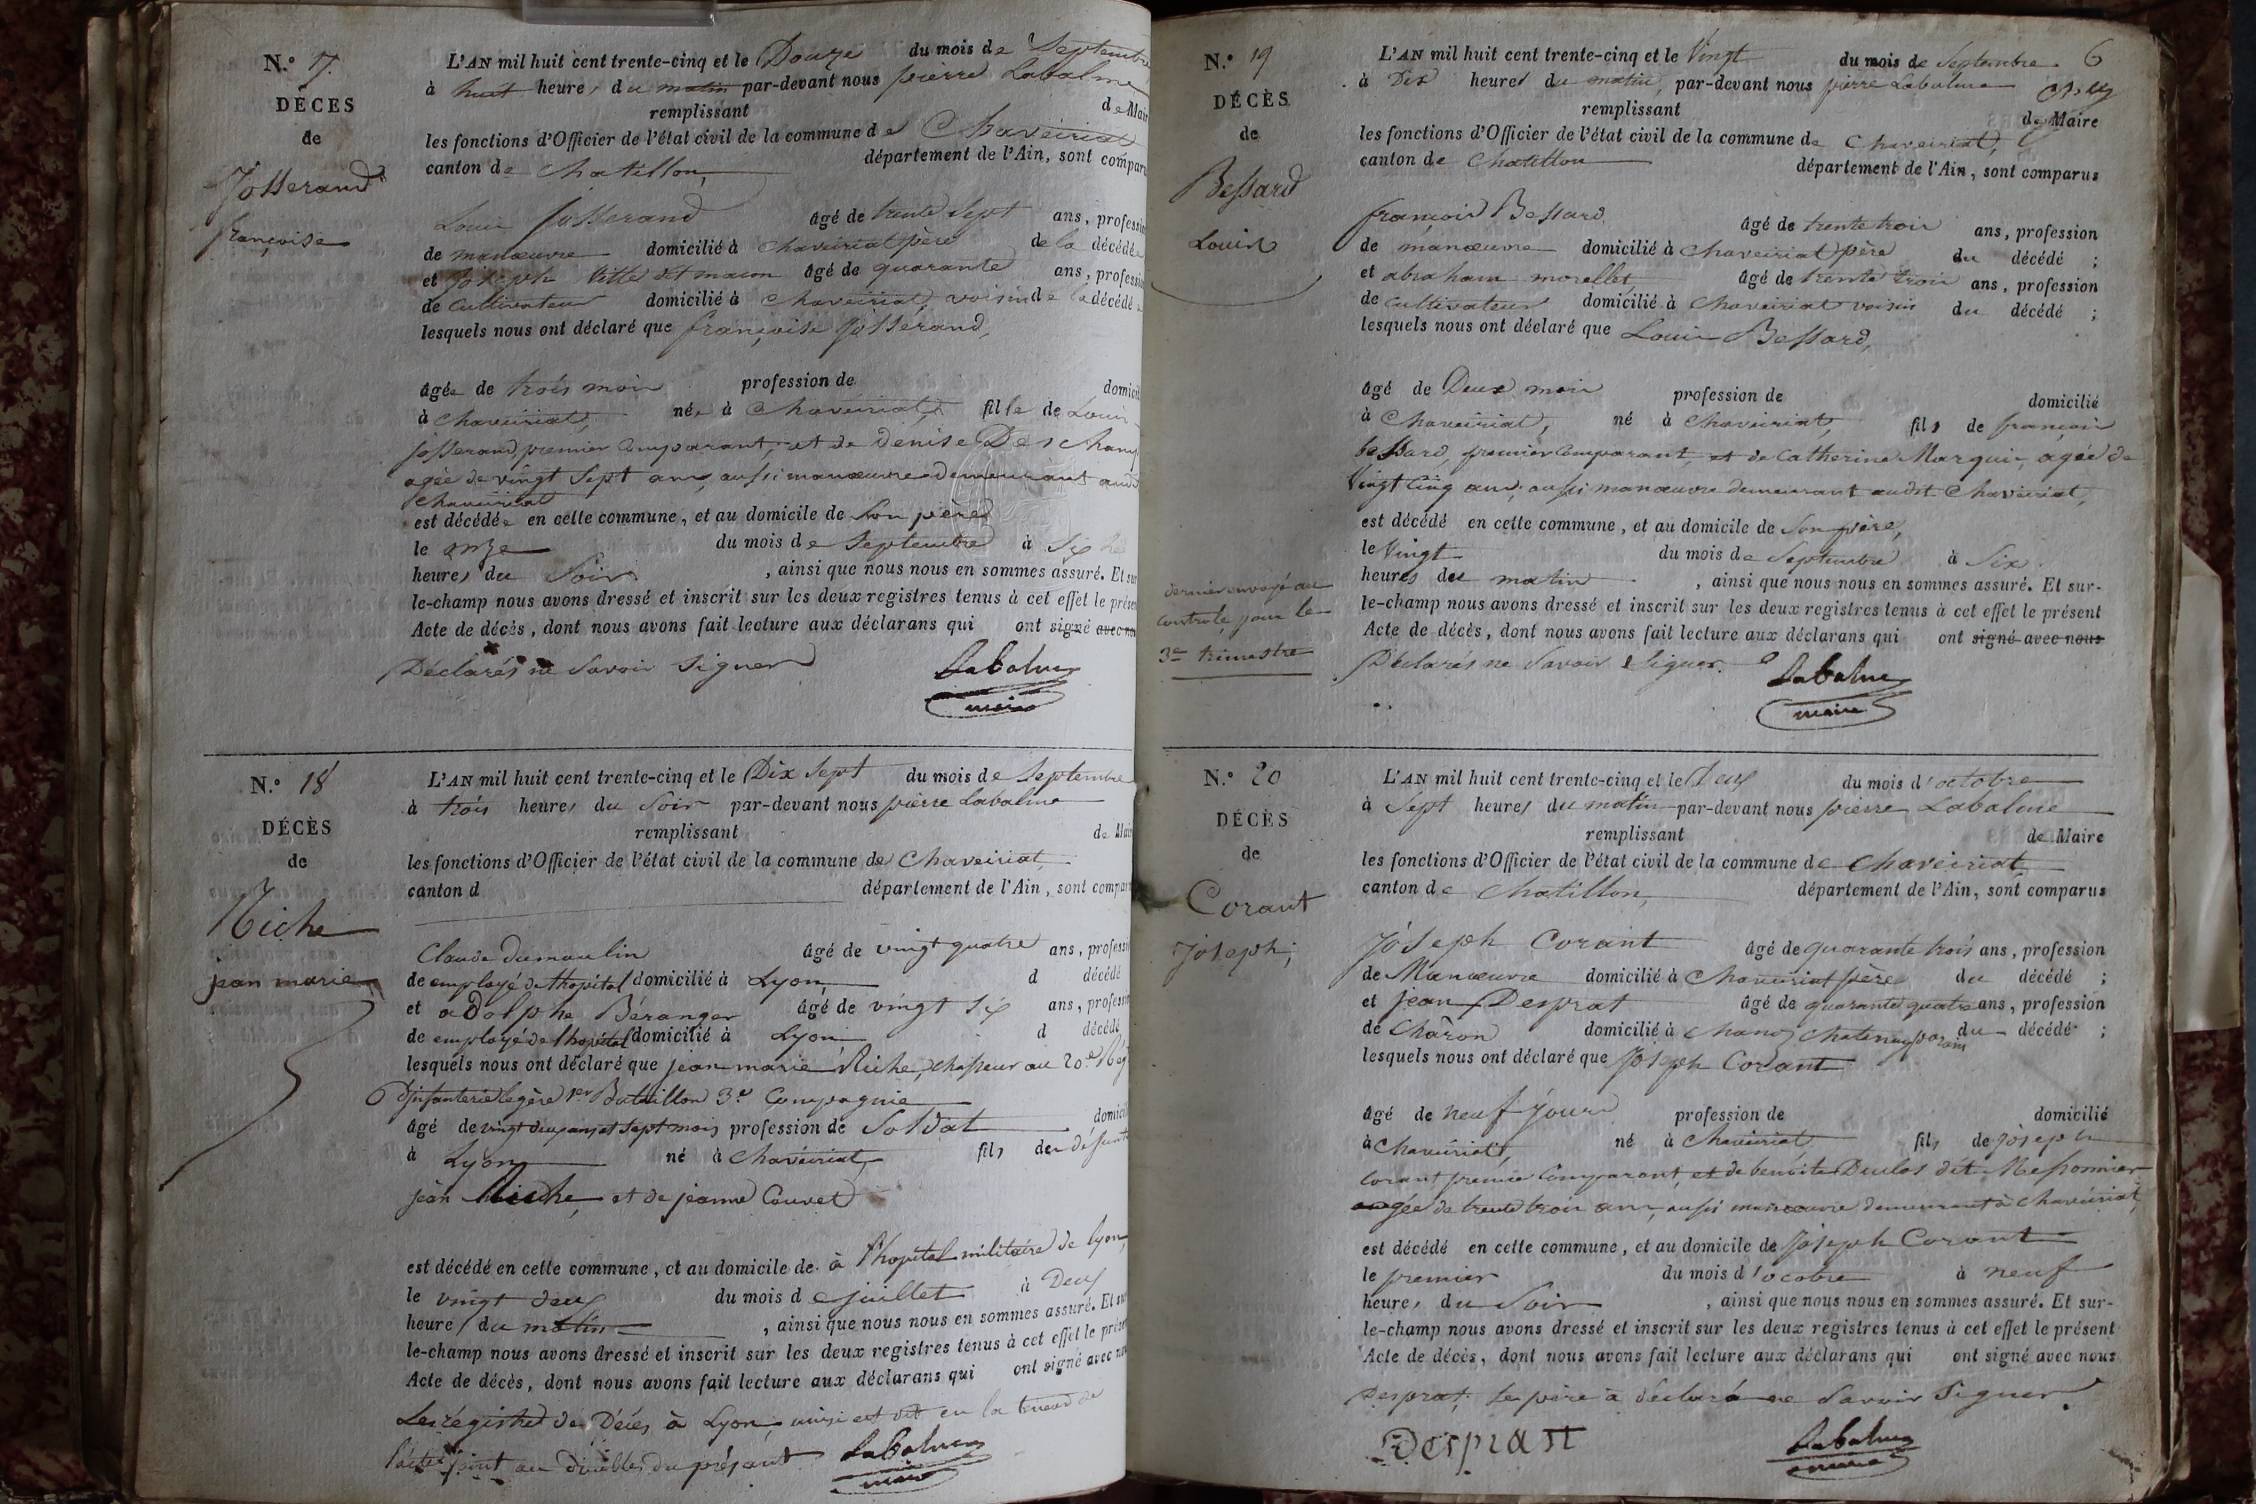 N.° 17.
DÉCES
de
Josserand
françoise
L'AN mil huit cent trente-cinq et le Douze du mois de Septembre
à huit heures du matin par-devant nous pierre Labalme
remplissant de Mair
les fonctions d'Officier de l'état civil de la commune de Chaveiriat
canton de Chatillon, département de l'Ain, sont comparu
Louis Josserand âgé de trente Sept ans, profession
de manœuvre domicilié à Chaveiriat père de la décédée
et Joseph âgé de quarante ans, profession
de Cultivateur domicilié à Chaveiriat, voisin de la décédée
lesquels nous ont déclaré que françoise Josserand,
âgée de trois mois profession de domicil
à Chaveiriat, née à Chaveiriat, fille de Louis
Josserand, premier Comparant, et de Denise Deschamp
agée de vingt Sept ans, aussi manœuvre demeurant aud
Chaveiriat
est décédée en cette commune, et au domicile de Son père
le onze du mois de Septembre à Six
heures du Soir , ainsi que nous nous en sommes assuré. Et sur
le-champ nous avons dressé et inscrit sur les deux registres tenus à cet effet le présen
Acte de décès, dont nous avons fait lecture aux déclarans qui ont signé avec nou
Déclarés ne Savoir Signer
Labalme
maire
N.° 18
DÉCÈS
de
Riche
jean marie
L'AN mil huit cent trente-cinq et le Dix Sept du mois de Septembre
à trois heures du Soir par-devant nous pierre Labalme
remplissant de Mair
les fonctions d'Officier de l'état civil de la commune de Chaveiriat
canton d département de l'Ain, sont compar
Claude Dumoulin âgé de vingt quatre ans, professi
de employé de l'hopital domicilié à Lyon, d décédé
et adolphe Béranger âgé de vingt Six ans, profess
de employé de l'hopital domicilié à Lyon, d décédé,
lesquels nous ont déclaré que jean marie Riche, chasseur au 20e Rég
D'infanterie legère 1er Bataillon 3e Compagnie
âgé de vingt deux ans et Sept mois profession de Soldat domicil
à Lyon né à Chaveiriat, fils de defunt
jean Riche, et de jeanne Couvet
est décédé en cette commune, et au domicile de à l'hopital militaire de lyon,
le vingt deux du mois de juillet à Deux
heures du matin , ainsi que nous nous en sommes assuré. Et sur
le-champ nous avons dressé et inscrit sur les deux registres tenus à cet effet le prése
Acte de décès, dont nous avons fait lecture aux déclarans qui ont signé avec nou
Les régistres de Décès à Lyon, ainsi est dit en la teneur de
l'acte joint au double du présent
Labalme
maire
6
N.° 19
DÉCÈS
de
Bessard
Louis
dernier envoyé au
controle pour le
3e trimestre
L'AN mil huit cent trente-cinq et le Vingt du mois de Septembre
à Dix heures du matin, par-devant nous pierre Labalme
remplissant de Maire
les fonctions d'Officier de l'état civil de la commune de Chaveiriat,
canton de Chatillon département de l'Ain, sont comparus
françois Bessard âgé de trente trois ans, profession
de manœuvre domicilié à Chaveiriat père du décédé ;
et abraham morellet âgé de trente trois ans, profession
de Cultivateur domicilié à Chaveiriat voisin du décédé ;
lesquels nous ont déclaré que Louis Bessard,
âgé de Deux mois profession de domicilié
à Chaveiriat, né à Chaveiriat, fils de françois
bessard, premier Comparant, et de Catherine Marguin, agée de
Vingt Cinq ans, aussi manœuvre demeurant audit Chaveiriat,
est décédé en cette commune, et au domicile de Son père,
le Vingt du mois de Septembre à Six
heures du matin , ainsi que nous nous en sommes assuré. Et sur-
le-champ nous avons dressé et inscrit sur les deux registres tenus à cet effet le présent
Acte de décès, dont nous avons fait lecture aux déclarans qui ont signé avec nous
Déclarés ne Savoir Signer.
Labalme
maire
N.° 20
DÉCÈS
de
Corant
Joseph,
L'AN mil huit cent trente-cinq et le Deux du mois d'octobre
à Sept heures du matin par-devant nous pierre Labalme
remplissant de Maire
les fonctions d'Officier de l'état civil de la commune de Chaveiriat,
canton de Chatillon, département de l'Ain, sont comparus
Joseph Corant âgé de quarante trois ans, profession
de Manœuvre domicilié à Chaveiriat père du décédé ;
et jean Desprat âgé de quarante quatre ans, profession
de Charon domicilié à Chanoz Chatenay parain du décédé ;
lesquels nous ont déclaré que Joseph Corant
âgé de neuf jours profession de domicilié
à Chaveiriat, né à Chaveiriat fils de joseph
Corant premier Comparant, et de benoite Duclos dit Messonnier
agée de trente trois ans, aussi manœuvre demeurant à Chaveiriat,
est décédé en cette commune, et au domicile de Joseph Corant
le premier du mois d'ocobre à neuf
heures du Soir , ainsi que nous nous en sommes assuré. Et sur-
le-champ nous avons dressé et inscrit sur les deux registres tenus à cet effet le présent
Acte de décès, dont nous avons fait lecture aux déclarans qui ont signé avec nous
Desprat, le père à déclaré ne Savoir Signer.
Desprast
Labalme
maire